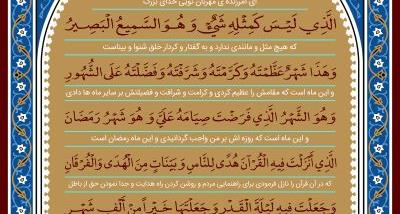 ای آمرزنده ی مهربان تویی خدای بزرگ
الَّذِي لَيْسَ كَمِثْلِهِ شَيْءٌ وَ هُوَ السَّمِيعُ الْبَصِيرُ
که هیچ مثل و مانندی ندارد و به گفتار و کردار خلق شنوا و بیناست
وَ هَذَا شَهْرٌ عَظَّمْتَهُ وَ كَرَّمْتَهُ وَ شَرَّفْتَهُ وَ فَضَّلْتَهُ عَلَى الشُّهُورِ
و این ماه است که مقامش را عظیم کردی و کرامت و شرافت و فضیلتش بر سایر ماه ها دادی
وَ هُوَ الشَّهْرُ الَّذِي فَرَضْتَ صِيَامَهُ عَلَيَّ وَ هُوَ شَهْرُ رَمَضَانَ
و این ماه است که روزه اش بر من واجب گردانیدی و این ماه رمضان است
الَّذِي أَنْزَلْتَ فِيهِ الْقُرْآنَ هُدًى لِلنَّاسِ وَ بَيِّنَاتٍ مِنَ الْهُدَى وَ الْفُرْقَانِ
که در آن قرآن را نازل فرمودی برای راهنمایی مردم و روشن کردن راه هدایت و جدا نمودن حق از باطل
وَ جَعَلْتَ فِيهِ لَيْلَةَ الْقَدْرِ وَ جَعَلْتَهَا خَيْراً مِنْ أَلْفِ شَهْرٍ